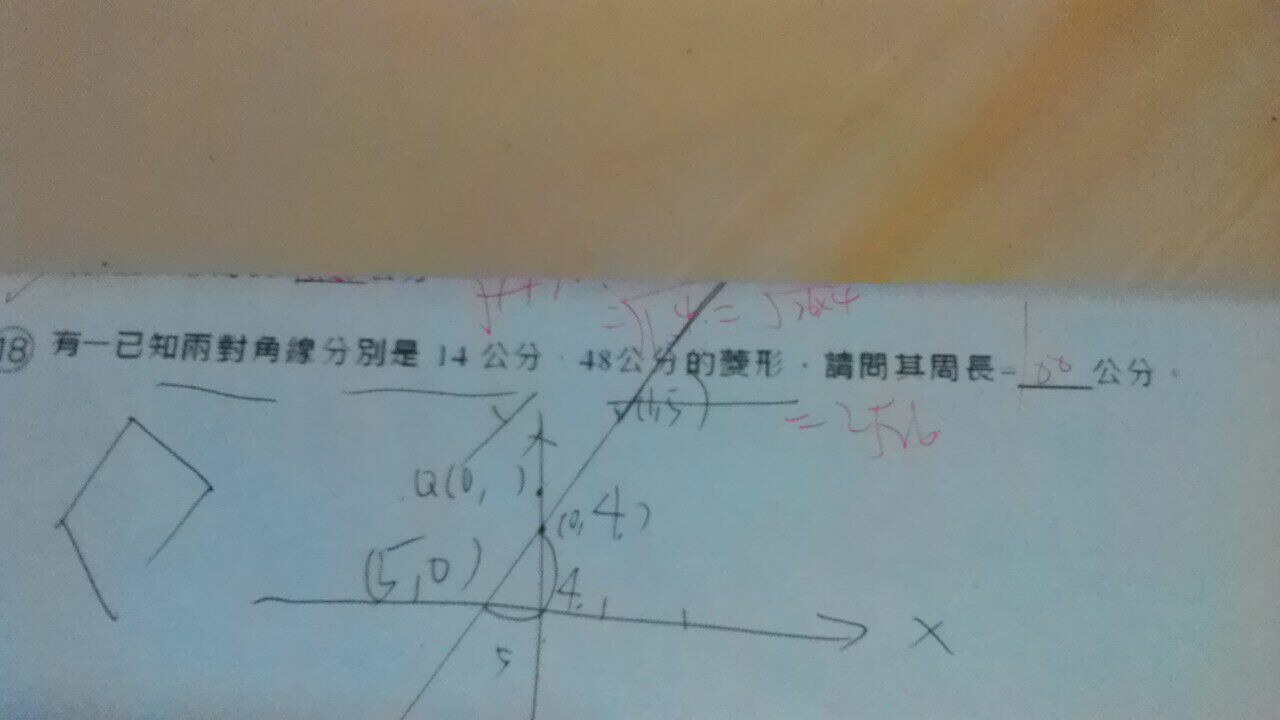 =√ = √26×4
⑱ 有一已知兩對角線分別是 14 公分、48公分的菱形，請問其周長=100公分。
(1,5)
= 2√26
Y
Q(0, )
(0, 4)
(5,0)
4
X
5